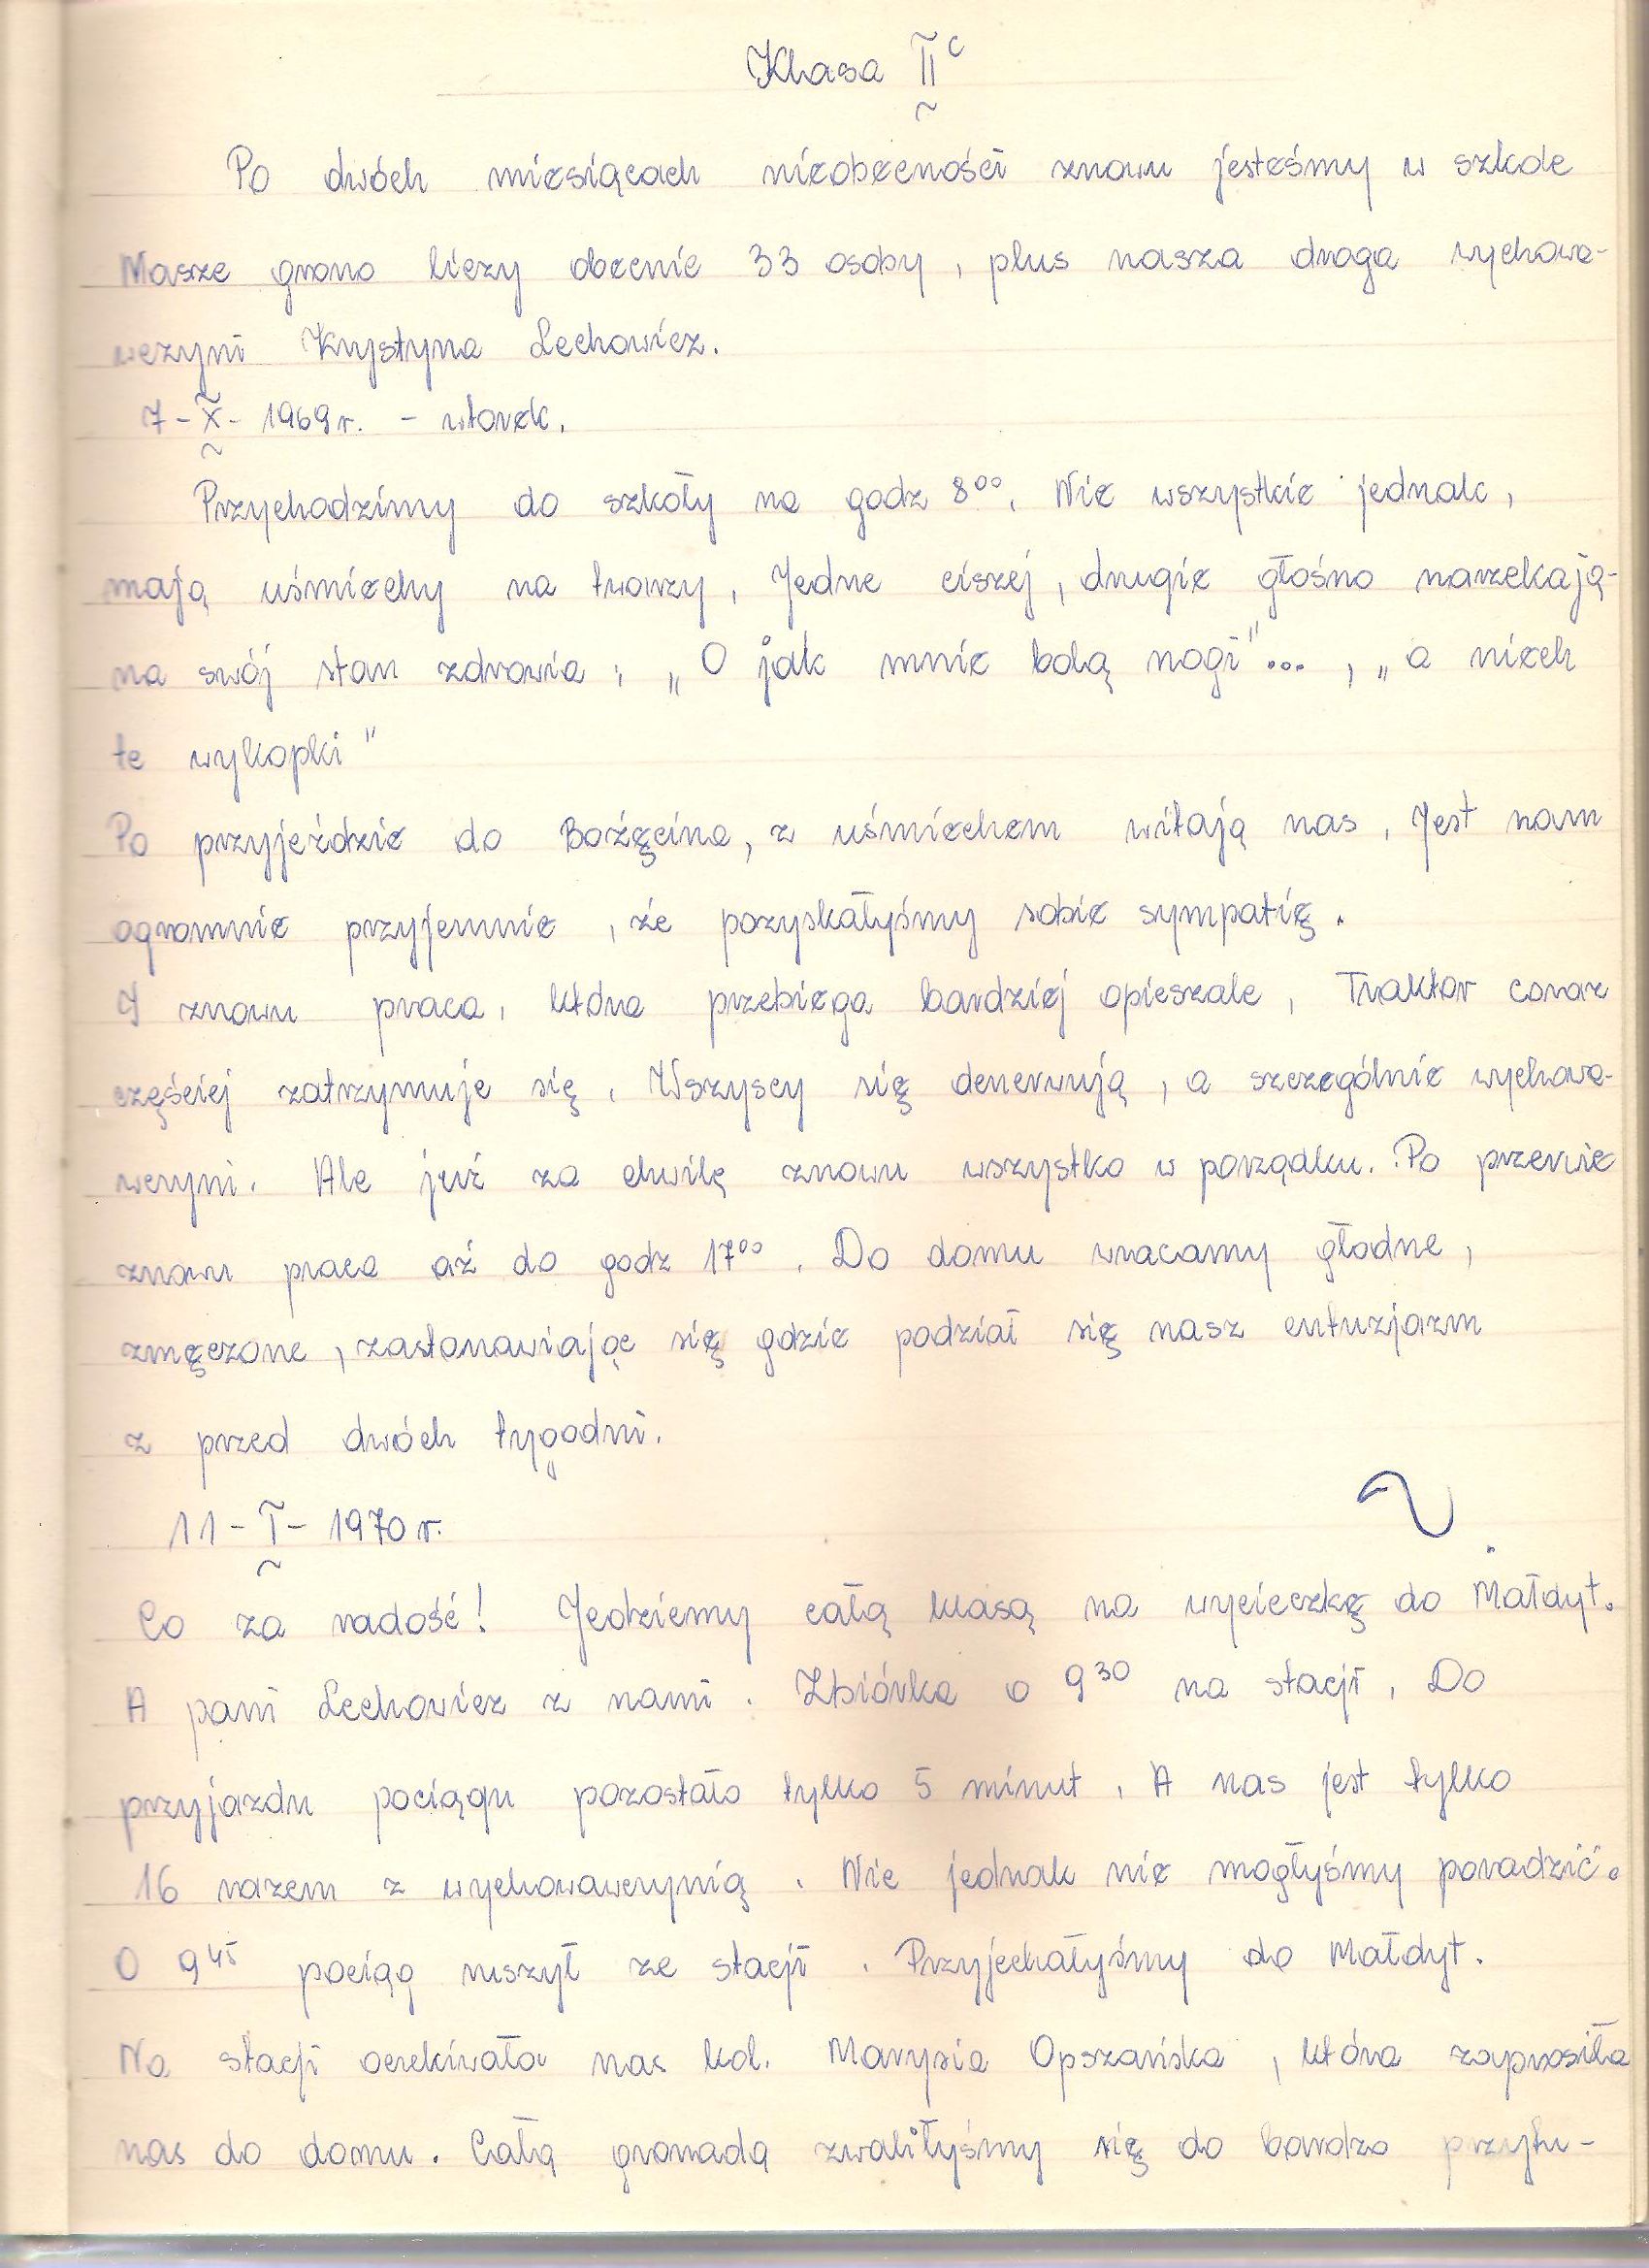 Klasa II c
Po dwóch miesiącach nieobecności znowu jesteśmy w szkole
Nasze grono liczy obecnie 33 osoby, plus nasza droga wychowa-
wczyni Krystyna Lechowicz.
7-X-1969 r. - wtorek.
Przychodzimy do szkoły na godz 8⁰⁰. Nie wszystkie jednak,
mają uśmiechy na twarzy. Jedne ciszej, drugie głośno narzekają-
na swój stan zdrowia: „O jak mnie bolą nogi"..., „a niech
te wykopki"
Po przyjeździe do Bożęcina, z uśmiechem witają nas. Jest nam
ogromnie przyjemnie, że pozyskałyśmy sobie sympatię.
I znowu praca, która przebiega bardziej opieszale. Traktor coraz
częściej zatrzymuje się. Wszyscy się denerwują, a szczególnie wychowa-
wczyni. Ale już za chwilę znowu wszystko w porządku. Po przerwie
znowu praca aż do godz 17⁰⁰. Do domu wracamy głodne,
zmęczone, zastanawiając się gdzie podział się nasz entuzjazm
z przed dwóch tygodni.
11-I-1970 r.
Co za radość! Jedziemy całą klasą na wycieczkę do Małdyt.
A pani Lechowicz z nami. Zbiórka o 9³⁰ na stacji. Do
przyjazdu pociągu pozostało tylko 5 minut. A nas jest tylko
16 razem z wychowawczynią. Nic jednak nie mogłyśmy poradzić.
O 9⁴⁵ pociąg ruszył ze stacji. Przyjechałyśmy do Małdyt.
Na stacji oczekiwała nas kol. Marysia Opszańska, która zaprosiła
nas do domu. Całą gromadą zwaliłyśmy się do bardzo przytu-